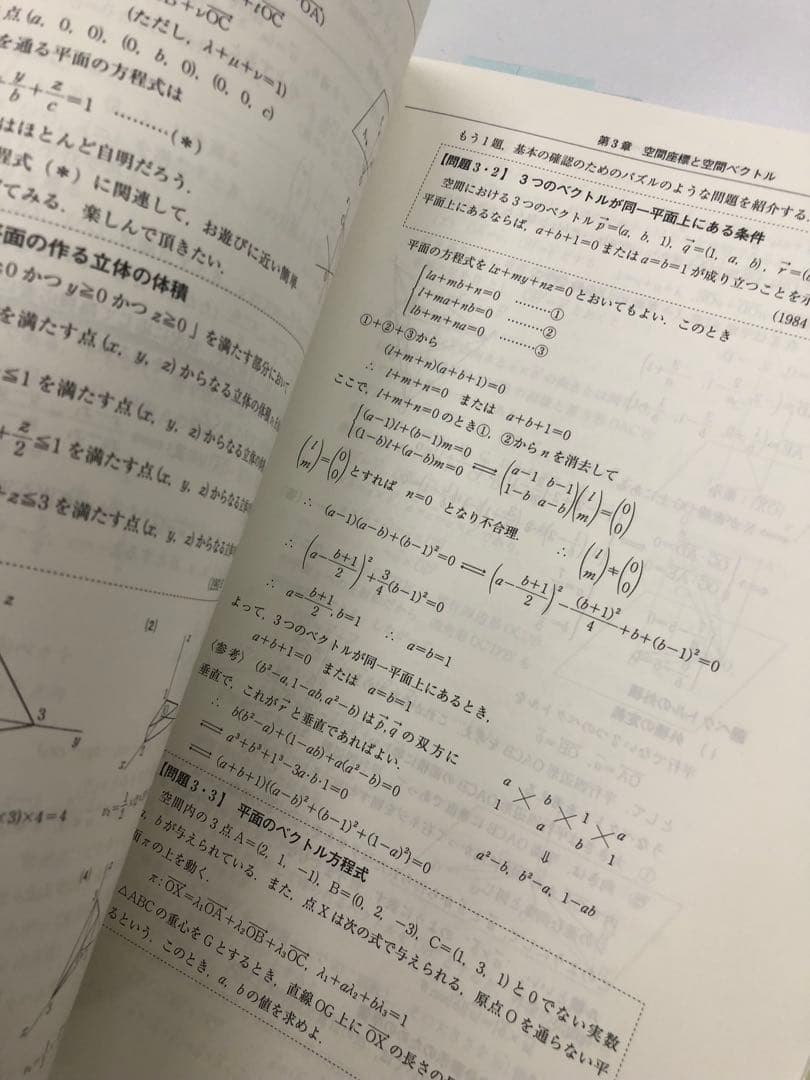 (ただし, λ+μ+ν=1)
点(a, 0, 0), (0, b, 0), (0, 0, c)
を通る平面の方程式は
y/b + z/c = 1 ………(*)
はほとんど自明だろう.
程式 (*) に関連して, お遊びに近い簡単
てみる. 楽しんで頂きたい.
平面の作る立体の体積
≧0 かつ y≧0 かつ z≧0」を満たす部分において
を満たす点(x, y, z)からなる立体の体積
≦1 を満たす点(x, y, z)からなる立体の体
+z/2≦1 を満たす点(x, y, z)からなる立体
+z≦3 を満たす点(x, y, z)からなる立体
z
3
y
(2)
×4=4
(4)
第3章 空間座標と空間ベクトル
もう1題, 基本の確認のためのパズルのような問題を紹介する.
【問題3・2】 3つのベクトルが同一平面上にある条件
空間における3つのベクトル p=(a, b, 1), q=(1, a, b), r=(
平面上にあるならば, a+b+1=0 または a=b=1 が成り立つことを示
(1984
平面の方程式を lx+my+nz=0 とおいてもよい. このとき
la+mb+n=0 ………①
l+ma+nb=0 ………②
lb+m+na=0 ………③
①+②+③から
(l+m+n)(a+b+1)=0
∴ l+m+n=0 または a+b+1=0
ここで, l+m+n=0 のとき①, ②から n を消去して
{(a-1)l+(b-1)m=0 (1-b)l+(a-b)m=0 ⟺ (a-1 b-1 1-b a-b)(l m)=(0 0)
(l m)=(0 0) とすれば n=0 となり不合理. ∴ (l m)≠(0 0)
∴ (a-1)(a-b)+(b-1)²=0 ⟺ (a-(b+1)/2)²-(b+1)²/4+b+(b-1)²=0
∴ (a-(b+1)/2)²+3/4(b-1)²=0
∴ a=(b+1)/2, b=1 ∴ a=b=1
よって, 3つのベクトルが同一平面上にあるとき,
a+b+1=0 または a=b=1
(参考) (b²-a, 1-ab, a²-b) は p, q の双方に
垂直で, これが r と垂直であればよい.
∴ b(b²-a)+(1-ab)+a(a²-b)=0
⟺ a³+b³+1³-3a·b·1=0
⟺ (a+b+1)((a-b)²+(b-1)²+(1-a)²)=0
a b 1 a
1 a b 1
⇓
a²-b, b²-a, 1-ab
【問題3・3】 平面のベクトル方程式
空間内の3点 A=(2, 1, -1), B=(0, 2, -3), C=(1, 3, 1) と 0 でない実数
a, b が与えられている. また, 点 X は次の式で与えられる, 原点 O を通らない平
面 π の上を動く.
π: OX=λ₁OA+λ₂OB+λ₃OC, λ₁+aλ₂+bλ₃=1
△ABC の重心を G とするとき, 直線 OG 上に OX の長さの
るという. このとき, a, b の値を求めよ.